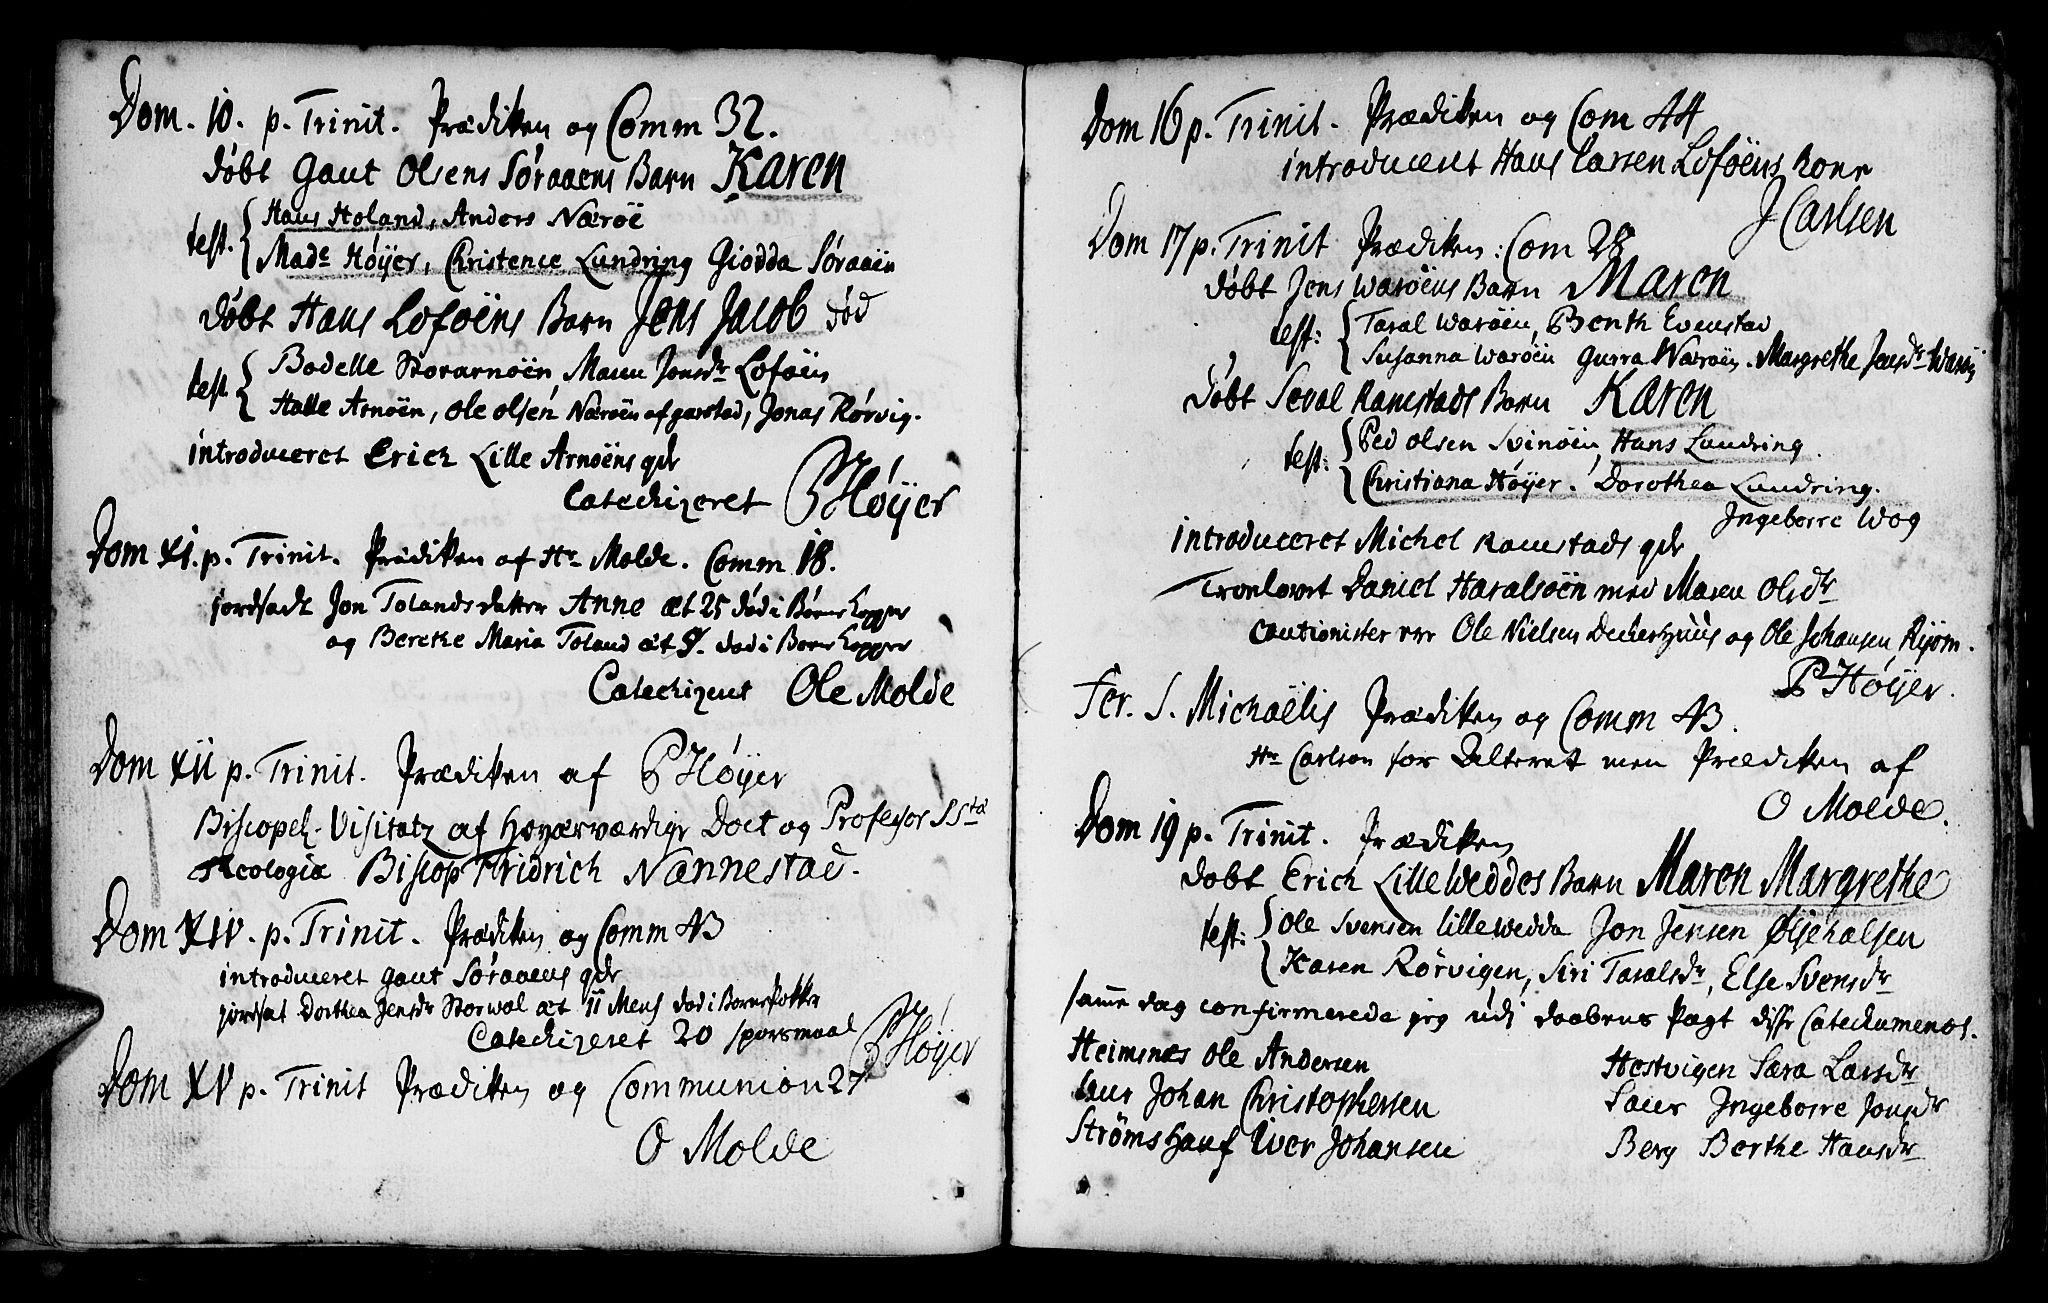 Dom. 10. p. Trinit. Prædiken og Comm 32.
døbt Gaut Olsens Søraaens Barn Karen
test. Hans Holand, Anders Nærøe
Made Høyer, Christence Lundring Giodda Søraaen
døbt Hans Loføens Barn Jens Jacob død
test Bodelle Storarnøen, Maren Jonsdr Loføen
Halle Arnøen, Ole olsen Nærøen af garstad, Jonas Rørvig.
introduceret Erich Lille Arnøens qdr
Catechizeret P Høyer
Dom XI. p. Trinit. Prædiken af Hr Molde. Comm 18.
jordsadt Jon Tolands datter Anne æt 25 død i Børne kopper
og Berethe Maria Toland æt 9. død i Børne kopper
Catechizeret Ole Molde
Dom XII p. Trinit. Prædiken af P Høyer
Biscopel. Visitatz af Høyærværdige Doct og Professor SStæ
Theologiæ Biscop Fridrich Nannestad.
Dom XIV. p. Trinit. Prædiken og Comm 43
introduceret Gaut Søraaens qdr
jordsat Dorthea Jensdr Storwal æt 11 Mens død i Børne Pokker
Catechizeret 20 sporsmaal P Høyer
Dom XV p. Trinit Prædiken og Communion 27
O Molde
Dom 16 p. Trinit. Prædiken og Com 44
introduceret Hans Carsen Loføens Kone
J Carlsen
Dom 17 p. Trinit Prædiken: Com 28
døbt Jens Warøens Barn Maren
test: Taral Warøen, Benth Evenstad
Susanna Warøen Gurra Nærøen. Margrethe Jensdr Warøe
døbt Seval Ramstads Barn Karen
test: Ped olsen Svinøen, Hans Lundring
Christiana Høyer. Dorothea Lundring.
Ingeborre Wog
introduceret Michel Ramstads qdr
Troelovet Daniel Haralsøen med Maren Olsdr
Cautionister var Ole Nielsen Deckerhuus og Ole Johansen Ryøm.
P Høyer.
Fer. S. Michaëlis Prædiken og Comm 43.
Hr Carlson for Alteret men Prædiken af
O Molde.
Dom 19 p. Trinit. Prædiken
døbt Erich Lille Weddes Barn Maren Margrethe
test: Ole Svensen lille Wedda Jon Jensen Øksehalsen
Karen Rørvigen, Siri Taralsdr, Else Svensdr
samme dag confirmerede jeg udi daabens Pagt disse Catechumenos.
Heimsnæs Ole Andersen
Saur Johan Christophersen
Strømshauf Iver Johansen
Hestvigen Sara Larsdr
Saur Ingeborre Jonsdr
Berg Berthe Hansdr